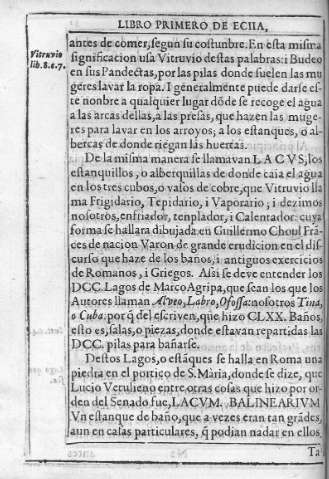 LIBRO PRIMERO DE ECIIA,
Vitruvio
lib. 8. c. 7.
antes de comer, segun su costunbre. En esta misma
significacion usa Vitruvio destas palabras: i Budeo
en sus Pandectas, por las pilas donde suelen las mu
geres lavar la ropa. I generalmente puede darse es-
te nonbre a qualquier lugar dõde se recoge el agua
a las arcas dellas, a las presas, que hazen las muge-
res para lavar en los arroyos; a los estanques, o al-
bercas de donde riegan las huertas.
De la misma manera se llamavan LACVS, los
estanquillos, o alberquillas de donde caia el agua
en los tres cubos, o vasos de cobre, que Vitruvio lla
ma Frigidario, Tepidario, i Vaporario; i dezimos
nosotros, enfriador, tenplador, i Calentador: cuya
forma se hallara dibujada en Guillermo Choul Frã-
ces de nacion Varon de grande erudicion en el dis-
curso que haze de los baños, i antiguos exercicios
de Romanos, i Griegos. Assi se deve entender los
DCC. Lagos de Marco Agripa, que sean los que los
Autores llaman Alveo, Labro, O fossa: nosotros Tina,
o Cuba. por q̃ del escriven, que hizo CLXX. Baños,
esto es, salas, o piezas, donde estavan repartidas las
DCC. pilas para bañarse.
Destos Lagos, o estãques se halla en Roma una
piedra en el portico de S. Maria, donde se dize, que
Lucio Vetulieno entre otras cosas que hizo por or-
den del Senado fue, LACVM. BALINEARIVM
Vn estanque de baño, que a vezes eran tan grãdes,
aun en casas particulares, q̃ podian nadar en ellos
Ta